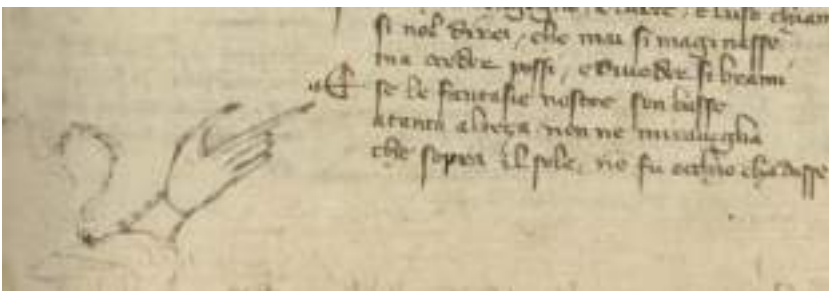 e larte, e luso chiam
si nol direi, che mai si maginasse
ma creder possi, e diueder si brami
E se le fantasie nostre son basse
atanta alteça non ne marauegha
che sopra il sole, no fu occhio chadasse